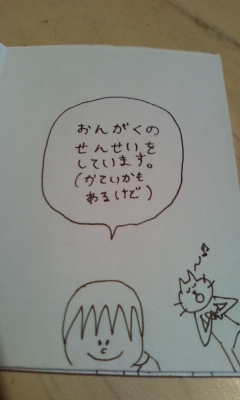 おんがくの
せんせいを
しています。
(かていかも
あるけど)